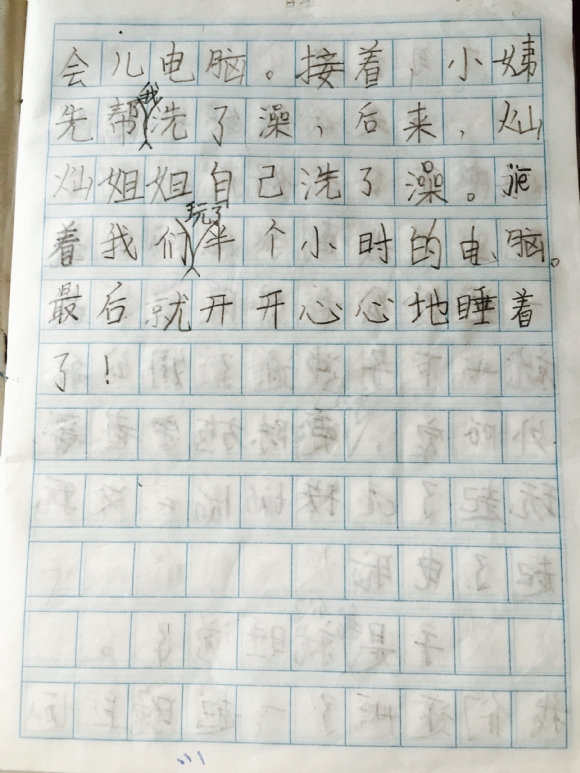 会儿电脑。接着，小姨
先帮我洗了澡，后来，灿
灿姐姐自己洗了澡。
着我们玩了半个小时的电脑。
最后就开开心心地睡着
了！